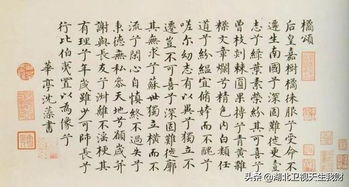 橘頌
后皇嘉樹橘徠服兮受命不
遷生南國兮深固難徙更壹
志兮綠葉素榮紛其可喜兮
曾枝剡棘圓果摶兮青黃雜
糅文章爛兮精色內白類任
道兮紛緼宜脩姱而不醜兮
嗟爾幼志有以異兮獨立不
遷豈不可喜兮深固難徙廓
其無求兮蘇世獨立橫而不
流兮閉心自慎終不過失兮
秉德無私參天地兮願歲并
謝與長友兮淑離不淫梗其
有理兮年歲雖少可師長兮
行比伯夷置以為像兮
華亭沈藻書
@湖北卫视天生我财